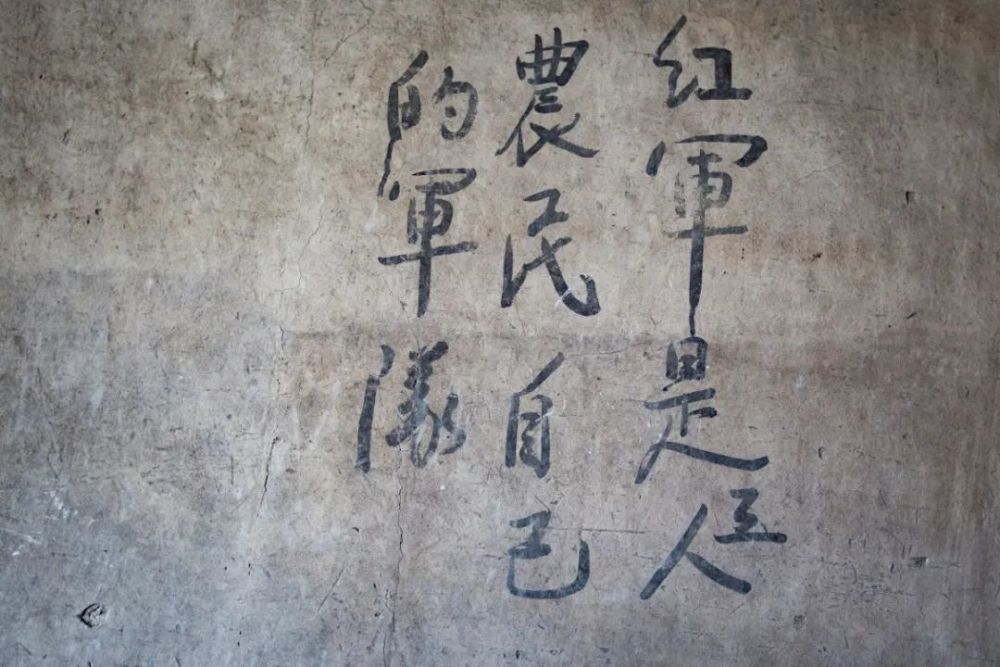 红軍是工人
農民自己
的軍隊